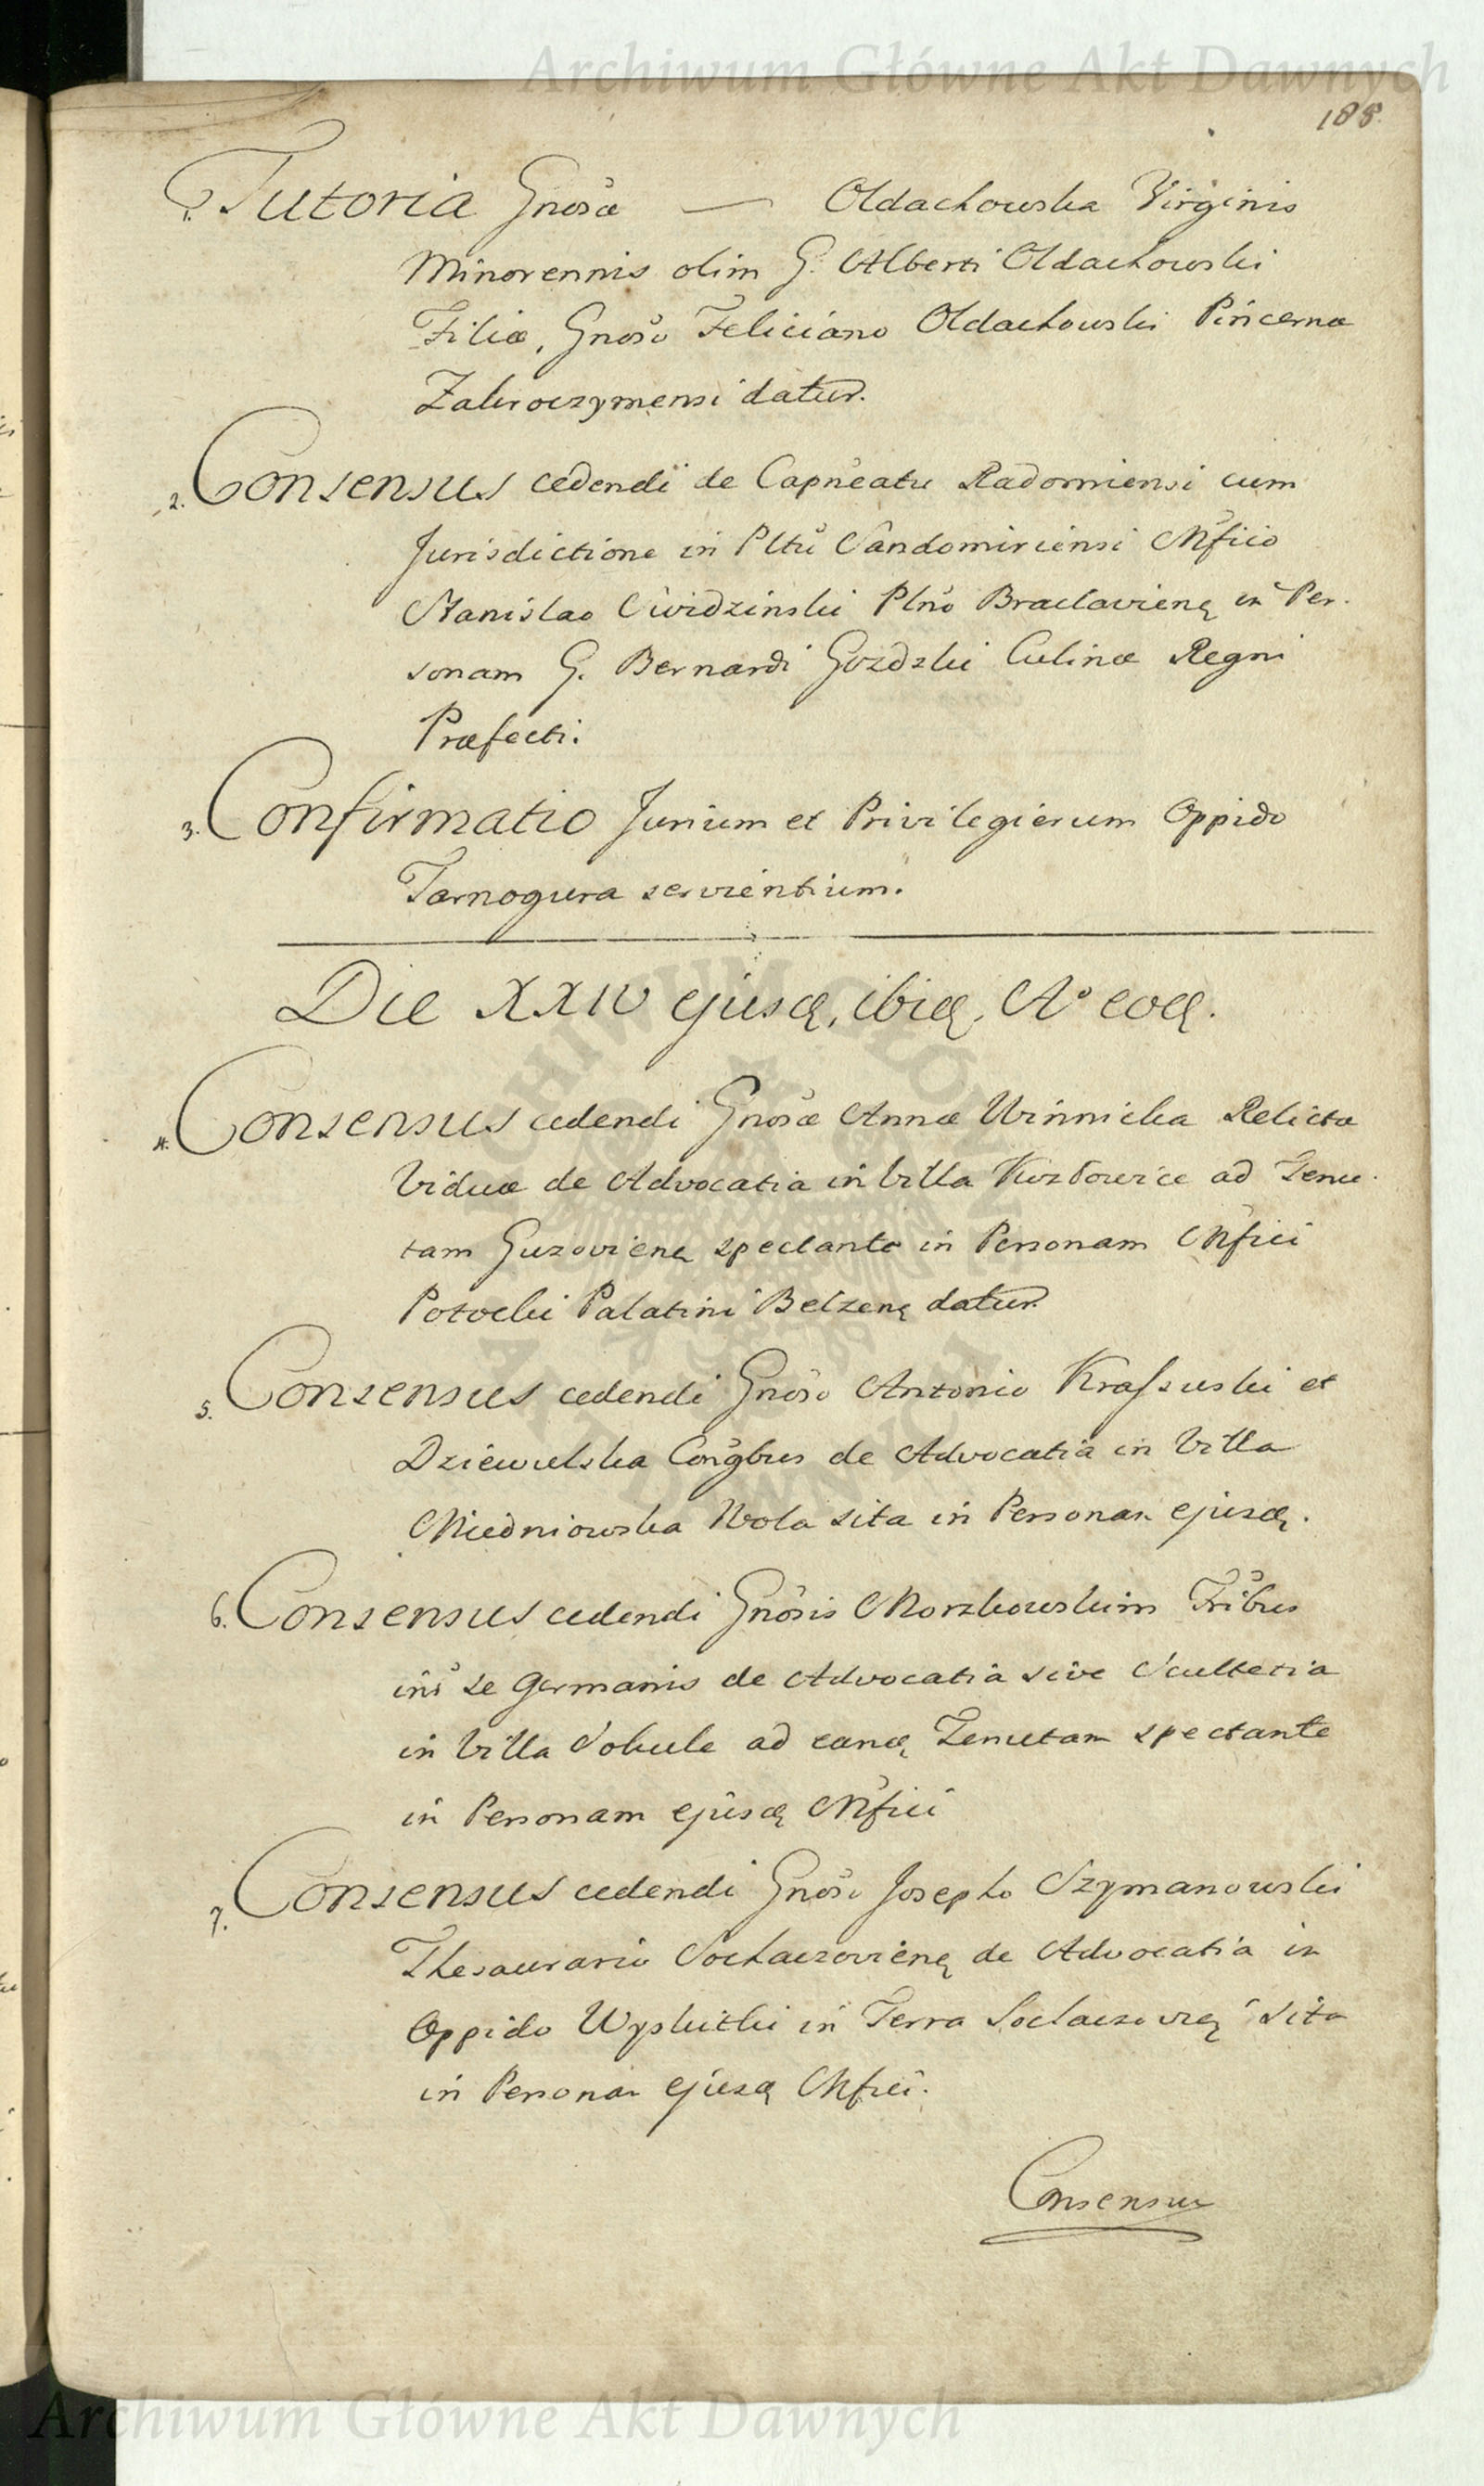 Archiwum Główne Akt Dawnych
188.
1. Tutoria Gnosæ — Oldachowska Virginis
Minorennis olim G. Alberti Oldachowski
Filiæ, Gnoso Feliciano Oldachowski Pincernæ
Zakroczymensi datur.
2. Consensus cedendi de Capneatu Radomiensi cum
Jurisdictione in Pltu Sandomiriensi Mfico
Stanislao Swidzinski Plno Braclavienȩ in Per-
sonam G. Bernardi Gozdzki Culinæ Regni
Præfecti.
3. Confirmatio Jurium et Privilegiorum Oppido
Tarnogura servientium.
Die XXIV ejusdȩ, ibidȩ, Aº eodȩ.
4. Consensus cedendi Gnosæ Annæ Winnicka Relictæ
Viduæ de Advocatia in Villa ad Tenu-
tam Guzovienȩ spectante in Personam Mfici
Potocki Palatini Belzenȩ datur
5. Consensus cedendi Gnoso Antonio Krassuski et
Dziewulska Congbus de Advocatia in Villa
Miedniowska Wola sita in Personam ejusdȩ.
6. Consensus cedendi Gnosis Morzkowskim Fribus
inr se Germanis de Advocatia sive Scultetia
in Villa Sokule ad eandȩ Tenutam spectante
in Personam ejusdȩ Mfici
7. Consensus cedendi Gnoso Josepho Szymanowski
Thesaurario Sochaczovienȩ de Advocatia in
Oppido Wyskitki in Terra sita
in Personam ejusdȩ Mfici.
Consensus
Archiwum Główne Akt Dawnych